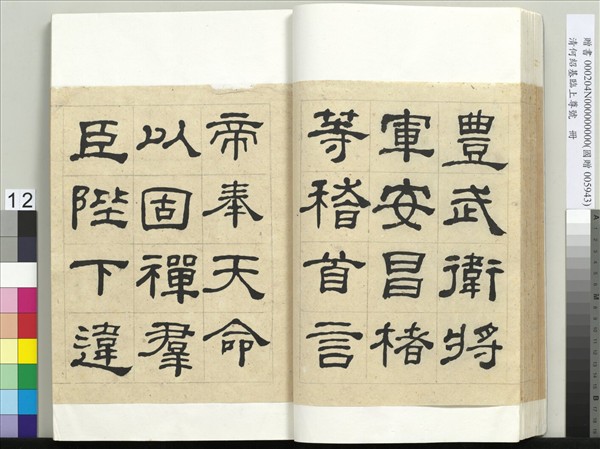 豊武衛將
軍安昌楮
等稽首言
帝奉天命
以固禪羣
臣陛下違
贈書 000204N000000000(國贈 005943)
清何紹基臨上尊號 冊
12
A
M
B